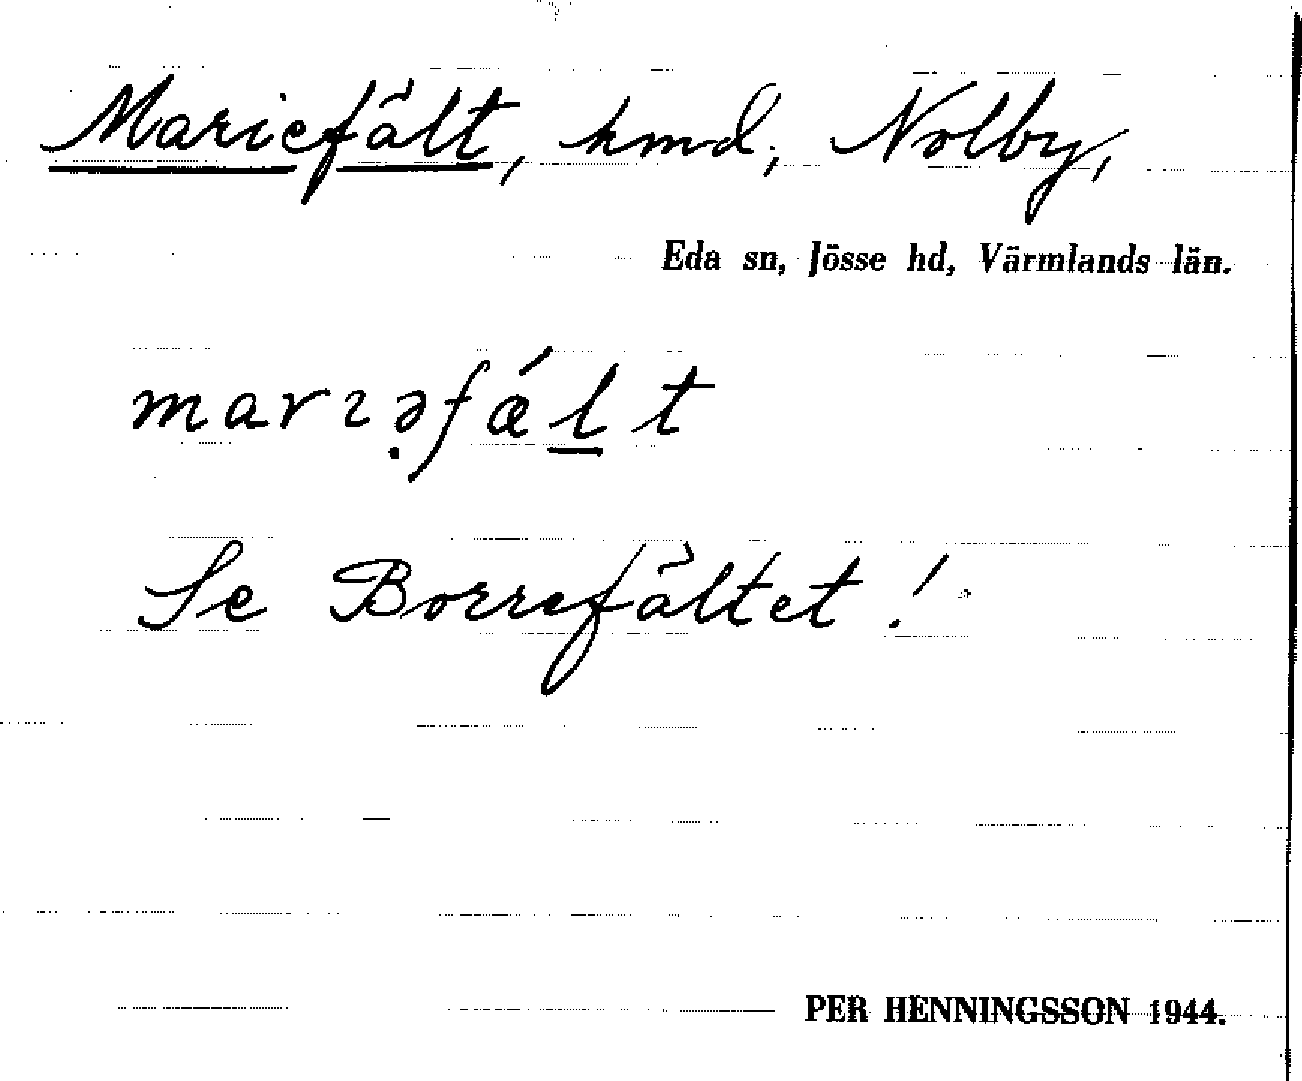 Mariefält, hmd, Nolby,
Eda sn, Jösse hd, Värmlands län.
marɩə̣fǽl̲t
Se Borrefältet!
PER HENNINGSSON 1944.